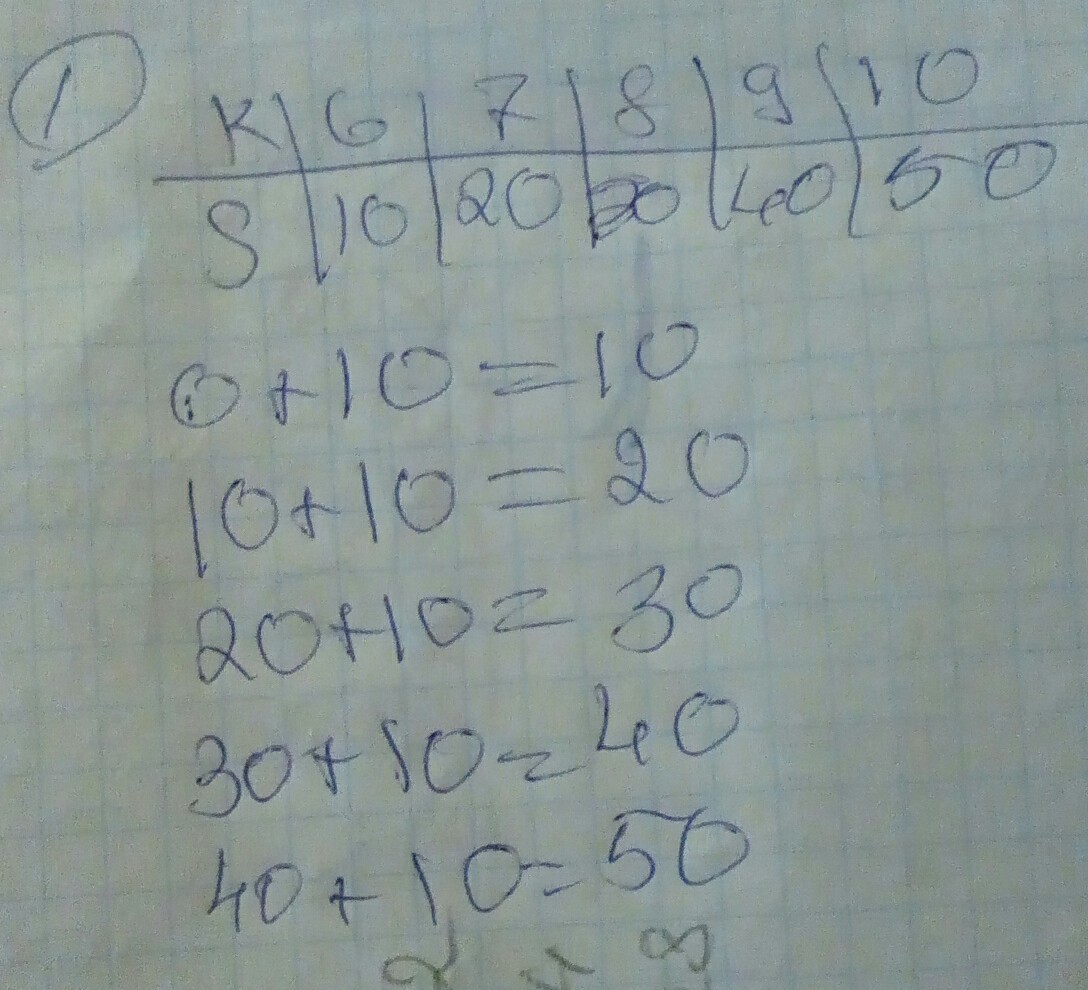 1
K | 6 | 7 | 8 | 9 | 10
S | 10 | 20 | 30 | 40 | 50
0+10=10
10+10=20
20+10=30
30+10=40
40+10=50